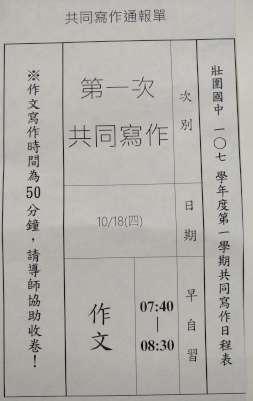 共同寫作通報單
壯圍國中一〇七學年度第一學期共同寫作日程表
次別
第一次
共同寫作
日期
10/18(四)
早自習
07:40
|
08:30
作文
※作文寫作時間為50分鐘，請導師協助收卷！